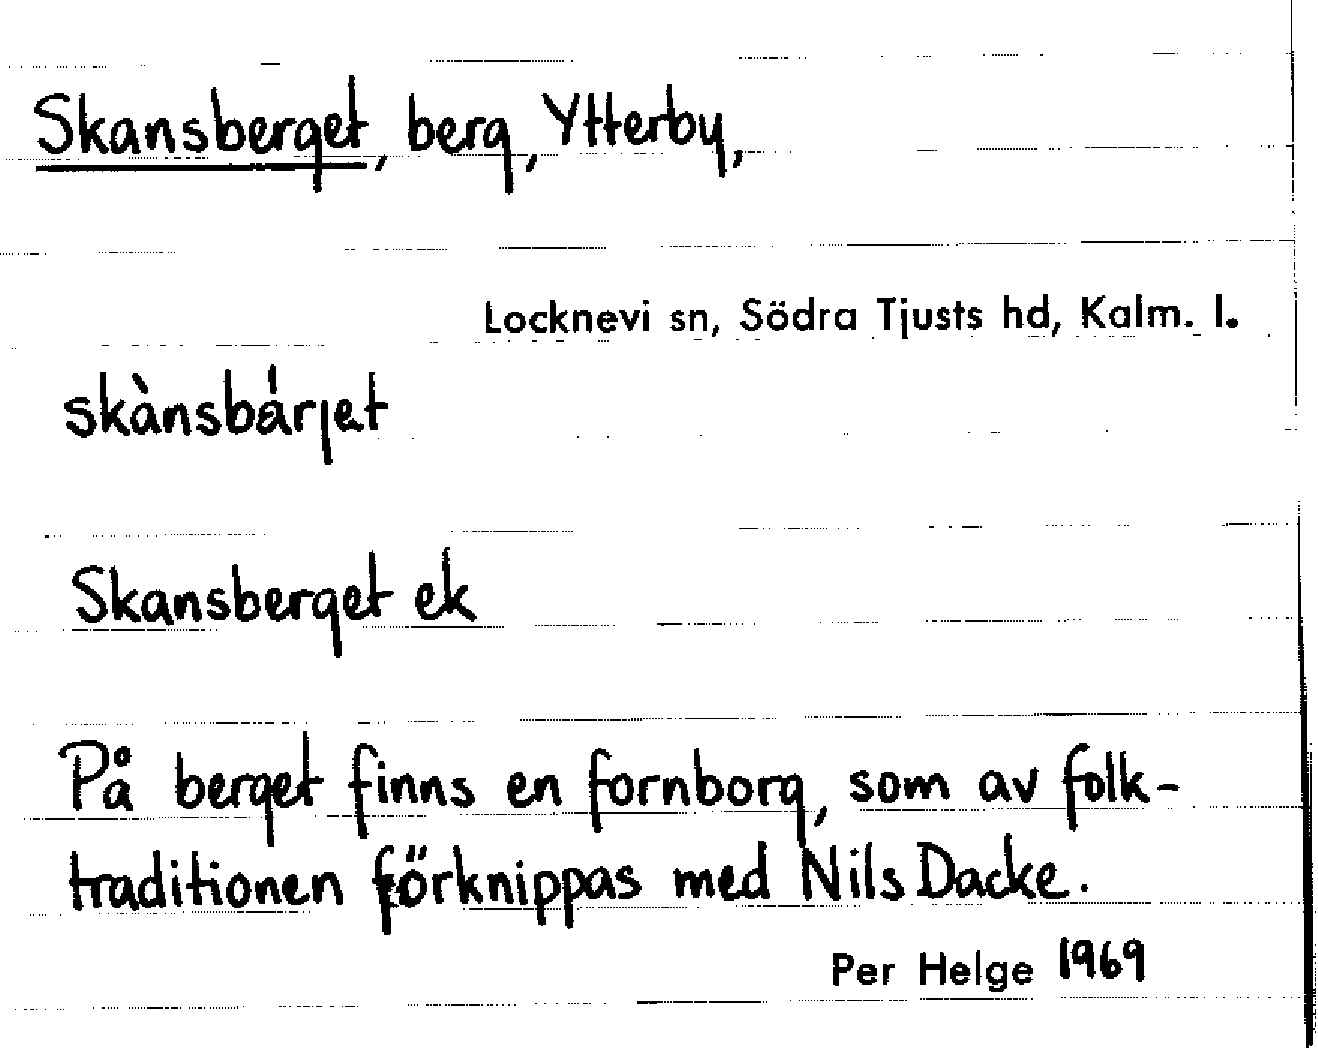 Skansberget, berg, Ytterby,
Locknevi sn, Södra Tjusts hd, Kalm. l.
skànsbárjet
Skansberget ek
På berget finns en fornborg, som av folk-
traditionen förknippas med Nils Dacke.
Per Helge 1969